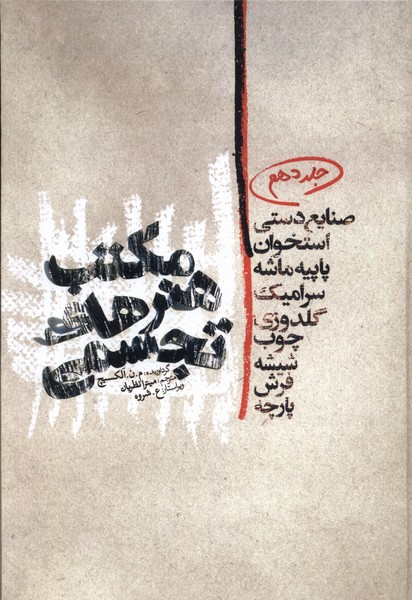 جلد دهم
صنایع دستی
استخوان
پاپیه ماشه
سرامیک
گلدوزی
چوب
شیشه
فرش
پارچه
مکتب
هنرهای
تجسمی
گردآورنده: م.ن.الکسیچ
مترجم: میترا نظریان
ویراستار: ع.شروه